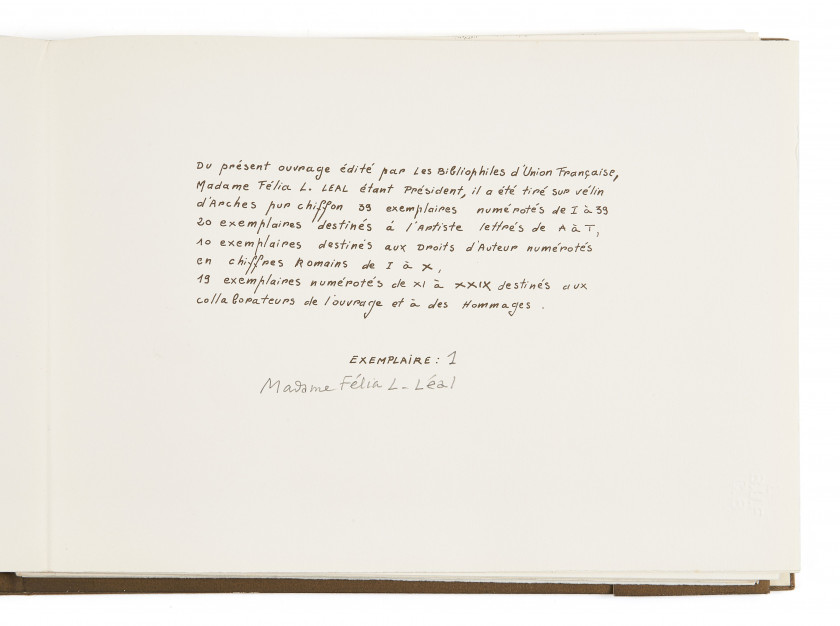 Du présent ouvrage édité par Les Bibliophiles d'Union Française,
Madame Félia L. LEAL étant Président, il a été tiré sur vélin
d'Arches pur chiffon 39 exemplaires numérotés de I à 39
20 exemplaires destinés à l'Artiste lettrés de A à T,
10 exemplaires destinés aux Droits d'Auteur numérotés
en chiffres Romains de I à X,
19 exemplaires numérotés de XI à XXIX destinés aux
collaborateurs de l'ouvrage et à des Hommages .
EXEMPLAIRE : 1
Madame Félia L - Léal